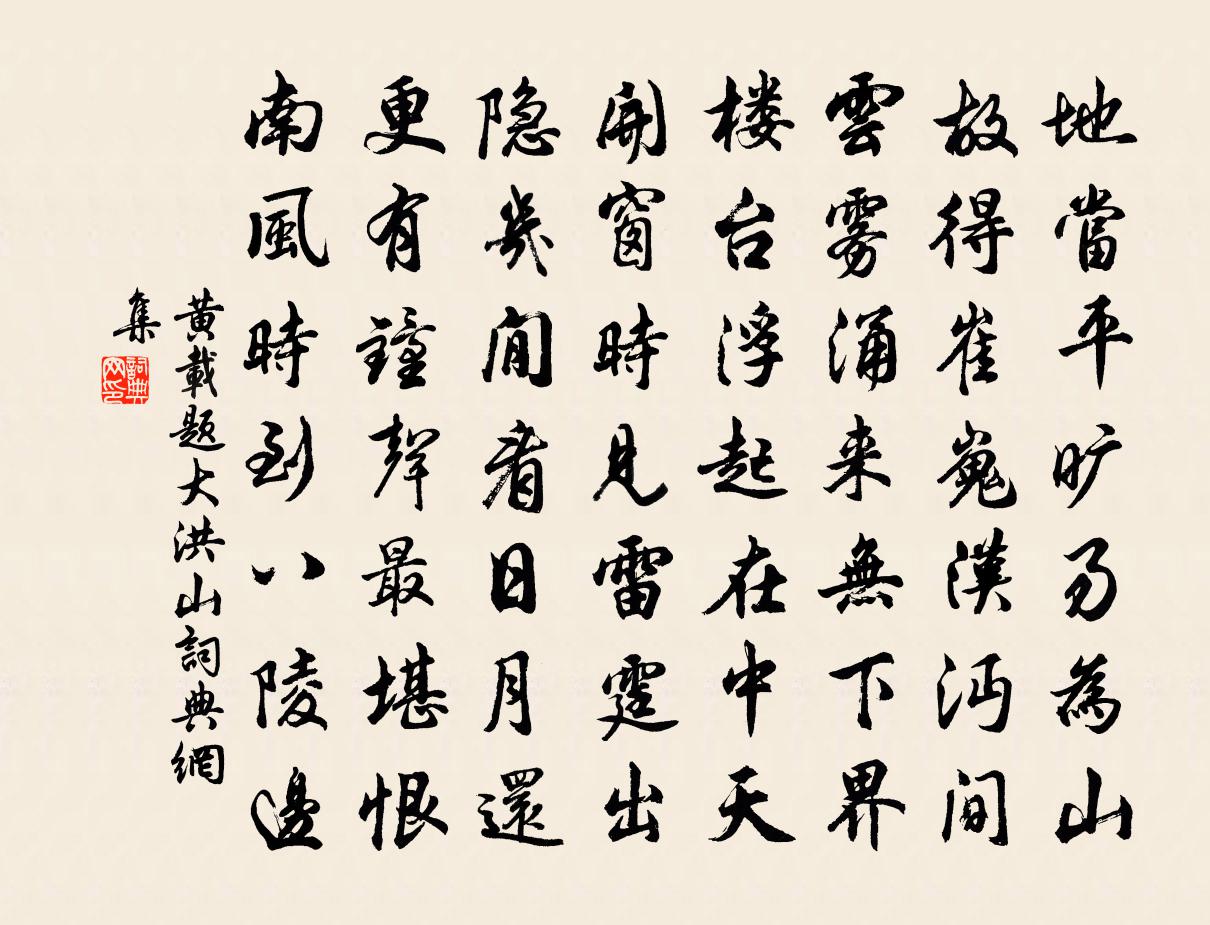 地當平旷易為山
故得崔嵬漢沔間
雲雾涌来無下界
楼台浮起在中天
開窗時見雷霆出
隐几閒看日月還
更有鐘聲最堪恨
南風時到八陵邊
黃載题大洪山詞典網
集
詞典网印